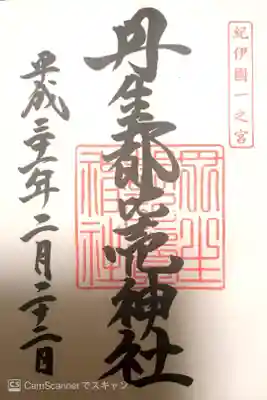 紀伊國一之宮
丹生都比売神社
平成三十一年二月二十二日
CS CamScannerでスキャン